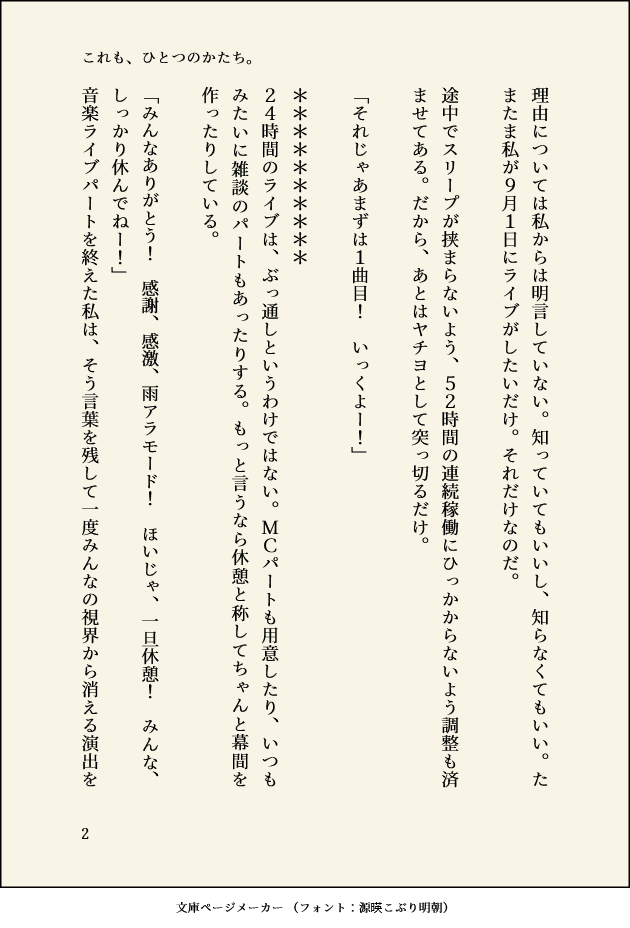 これも、ひとつのかたち。
理由については私からは明言していない。知っていてもいいし、知らなくてもいい。た
またま私が９月１日にライブがしたいだけ。それだけなのだ。
途中でスリープが挟まらないよう、５２時間の連続稼働にひっかからないよう調整も済
ませてある。だから、あとはヤチヨとして突っ切るだけ。
「それじゃあまずは１曲目！　いっくよー！」
＊＊＊＊＊＊＊＊＊＊
２４時間のライブは、ぶっ通しというわけではない。ＭＣパートも用意したり、いつも
みたいに雑談のパートもあったりする。もっと言うなら休憩と称してちゃんと幕間を
作ったりしている。
「みんなありがとう！　感謝、感激、雨アラモード！　ほいじゃ、一旦休憩！　みんな、
しっかり休んでねー！」
音楽ライブパートを終えた私は、そう言葉を残して一度みんなの視界から消える演出を
2
文庫ページメーカー（フォント：源暎こぶり明朝）